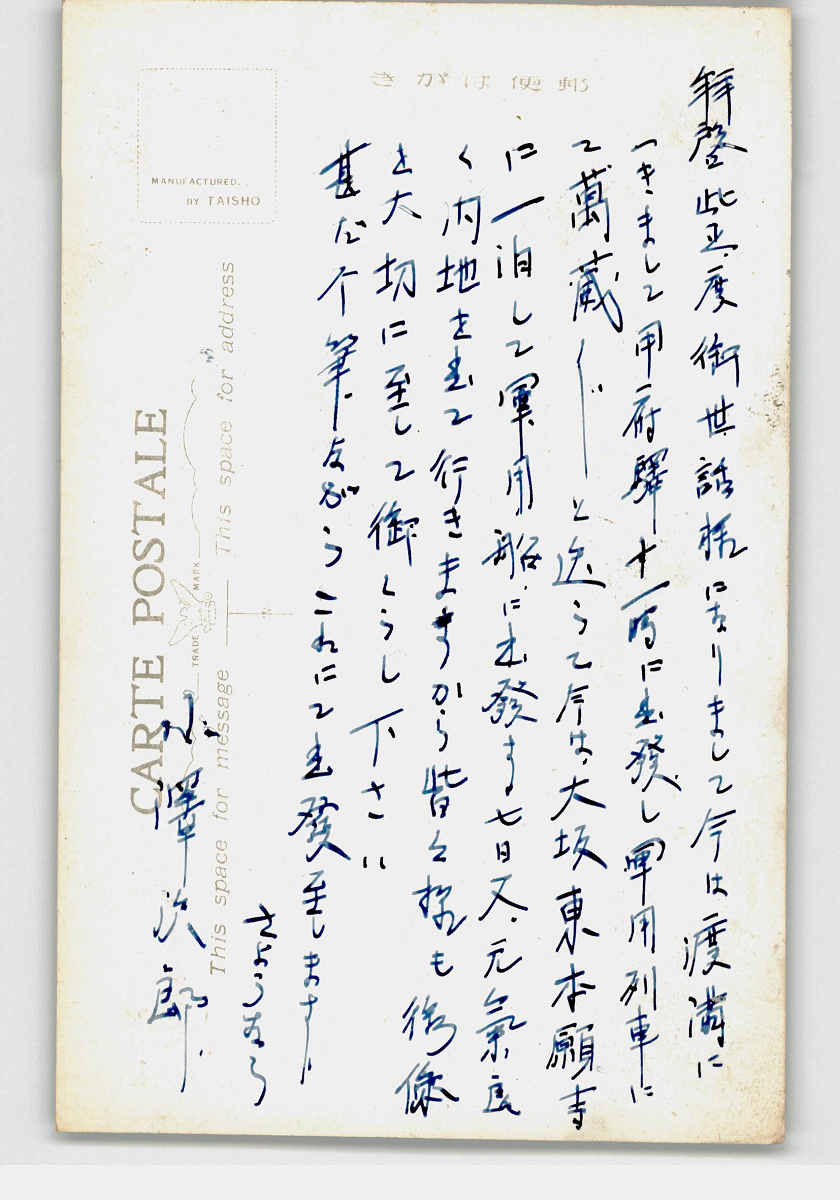 きがは便郵
拝啓此正度御世話様になりまして今は渡満に
つきまして甲府驛十一時に出發し軍用列車に
て萬歳レレと送らて今は大坂東本願寺
に一泊して軍用船に出發する七日又元氣良
く内地を出て行きますから皆々様も御体
を大切に至して御くらし下さい
甚だ个筆ながらこれにて出發至します
さようなら
小澤次郎
MANUFACTURED.
BY TAISHO
CARTE POSTALE
This space for message
This space for address
TRADE MARK